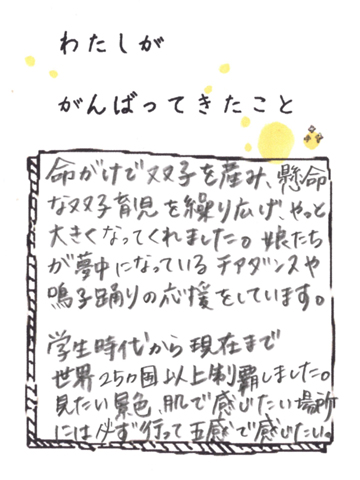 わたしが
がんばってきたこと
命がけで双子を産み、懸命
な双子育児を繰り広げ、やっと
大きくなってくれました。娘たち
が夢中になっているチアダンスや
鳴子踊りの応援をしています。
学生時代から現在まで
世界25カ国以上制覇しました。
見たい景色、肌で感じたい場所
には必ず行って五感で感じたい。